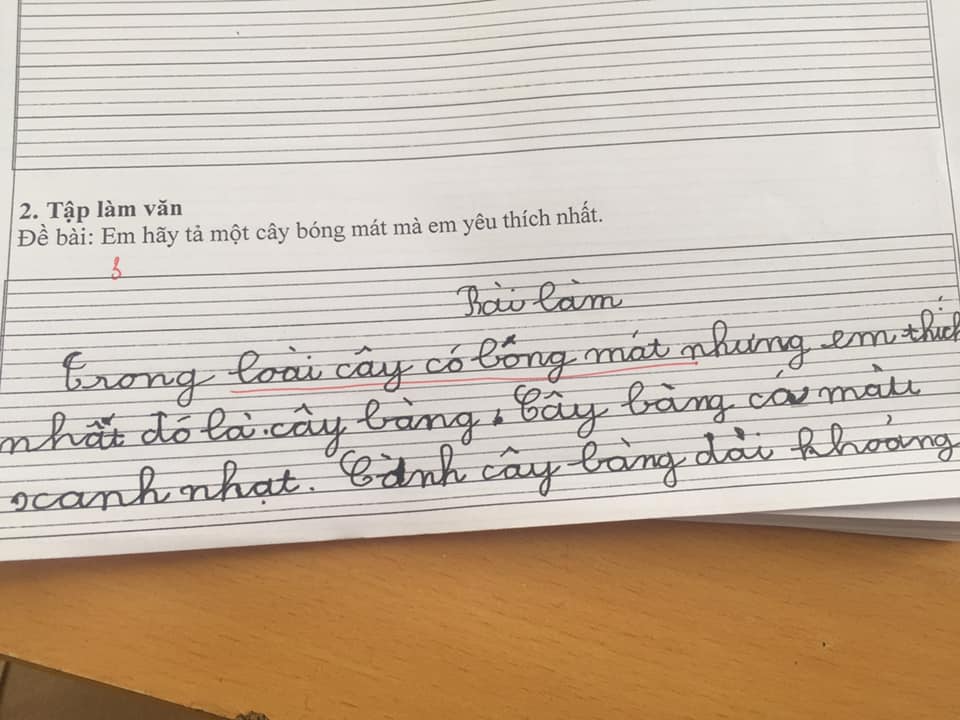 2. Tập làm văn
Đề bài: Em hãy tả một cây bóng mát mà em yêu thích nhất.
3
Bài làm
Trong loài cây có bống mát nhưng em thích
nhất đó là cây bàng. Cây bàng có màu
xanh nhạt. Cành cây bàng dài khoảng